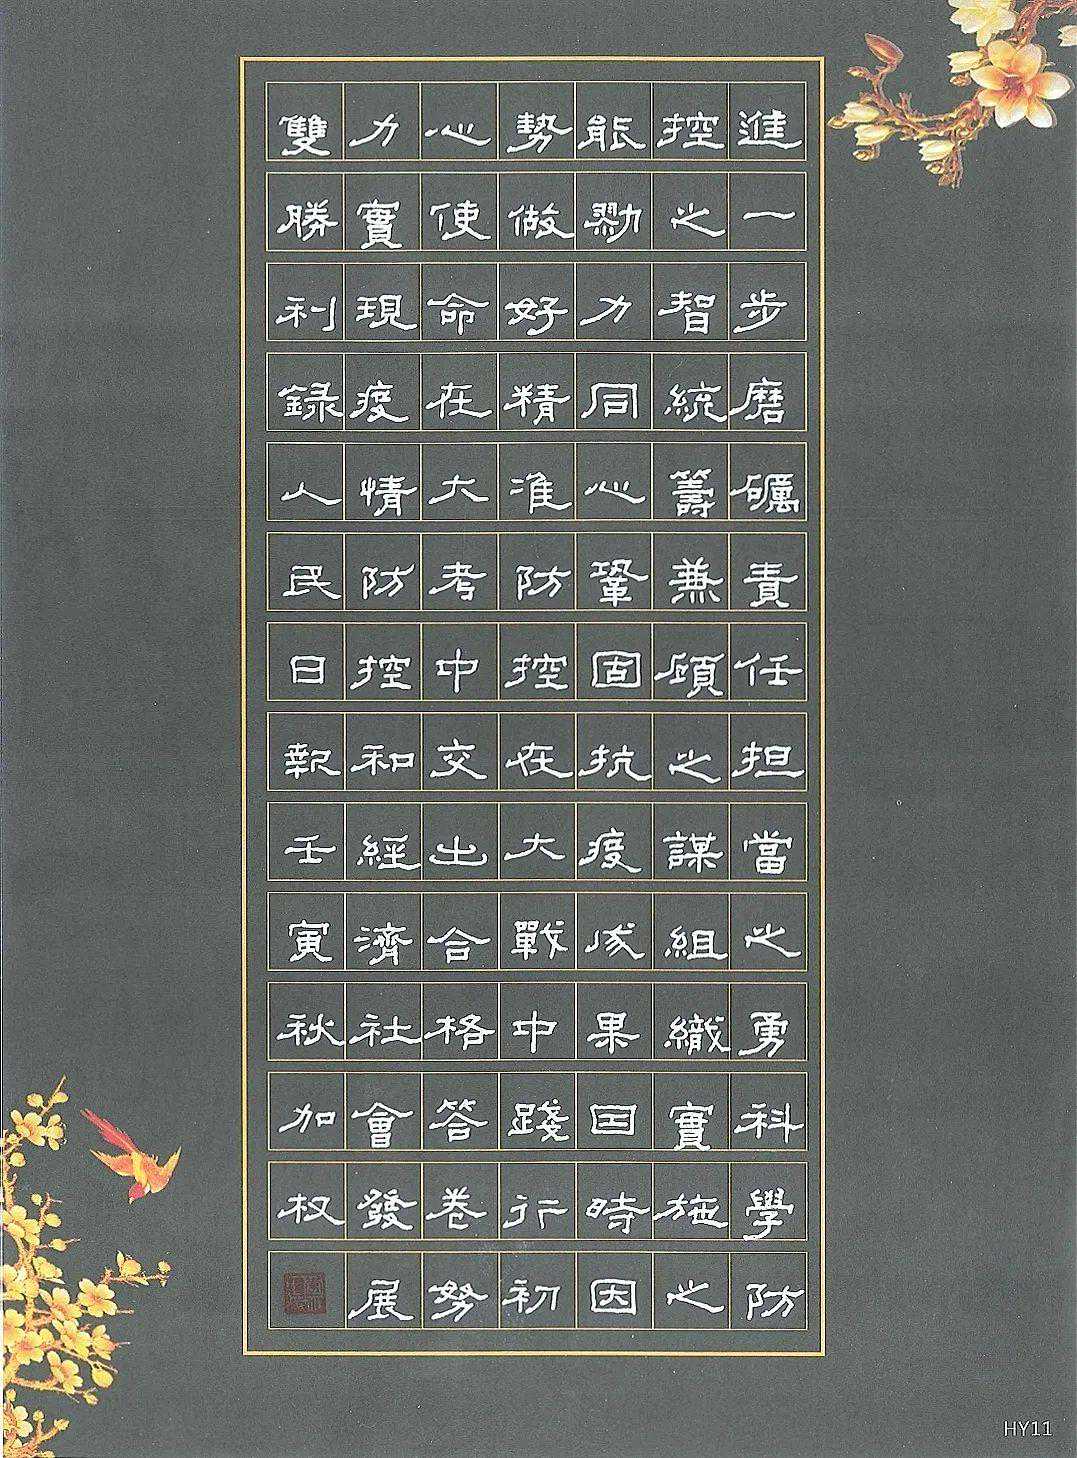 進一步磨礪責任担當之勇科學防
控之智統籌兼顧之謀組織實施之
能勠力同心鞏固抗疫成果因時因
勢做好精准防控在大戰中踐行初
心使命在大考中交出合格答卷努
力實現疫情防控和經濟社會發展
雙勝利録人民日報壬寅秋加权
HY11